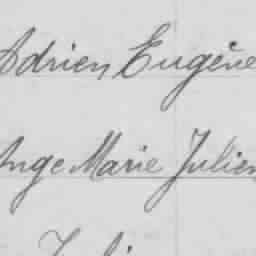 Adrien Eugène
Ange Marie Julien